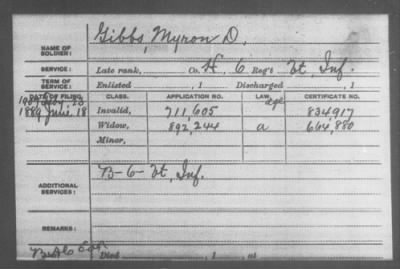 Gibbs, Myron D.
NAME OF SOLDIER:
SERVICE: Late rank, Co. H, 6 Reg't Vt. Inf.
TERM OF SERVICE: Enlisted , 1 Discharged , 1
DATE OF FILING. CLASS. APPLICATION NO. LAW. CERTIFICATE NO.
Invalid, 711,605 834,917
1889 June 18 Widow, 892,244 a 664,880
Minor,
ADDITIONAL SERVICES: B-6-Vt. Inf.
REMARKS:
Died , 1 , at